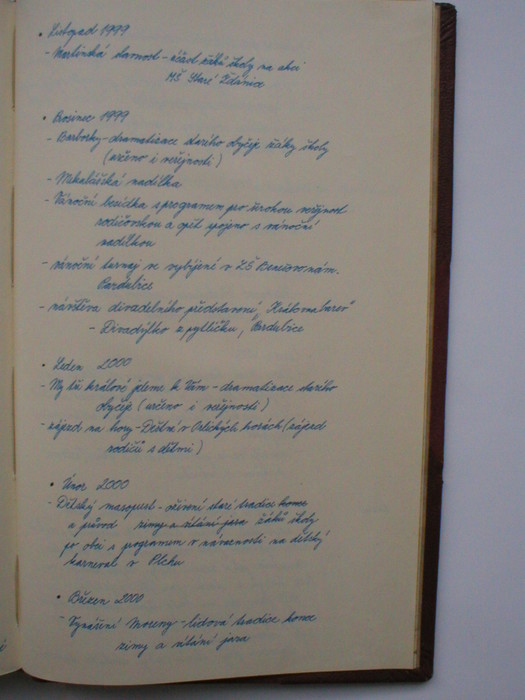 • Listopad 1999
- Martinská slavnost - účast žáků školy na akci
MŠ Staré Ždánice
• Prosinec 1999
- Barborky - dramatizace starého obyčeje žáky školy
(určeno i veřejnosti)
- Mikulášská nadílka
- Vánoční besídka s programem pro širokou veřejnost
rodičovskou a opět spojeno s vánoční
nadílkou
- vánoční turnaj ve vybíjené v ZŠ Benešovo nám.
Pardubice
- návštěva divadelního představení „Král má barev"
- Divadýlko z pytlíčku, Pardubice
• Leden 2000
- My tři králové jdeme k Vám - dramatizace starého
obyčeje (určeno i veřejnosti)
- zájezd na hory - Deštné v Orlických horách (zájezd
rodičů s dětmi)
• Únor 2000
- Dětský masopust - oživení staré tradice konce
a průvod zimy a vítání jara žáků školy
po obci s programem v návaznosti na dětský
karneval v Plchu
• Březen 2000
- Vynášení Moreny - lidová tradice konce
zimy a vítání jara